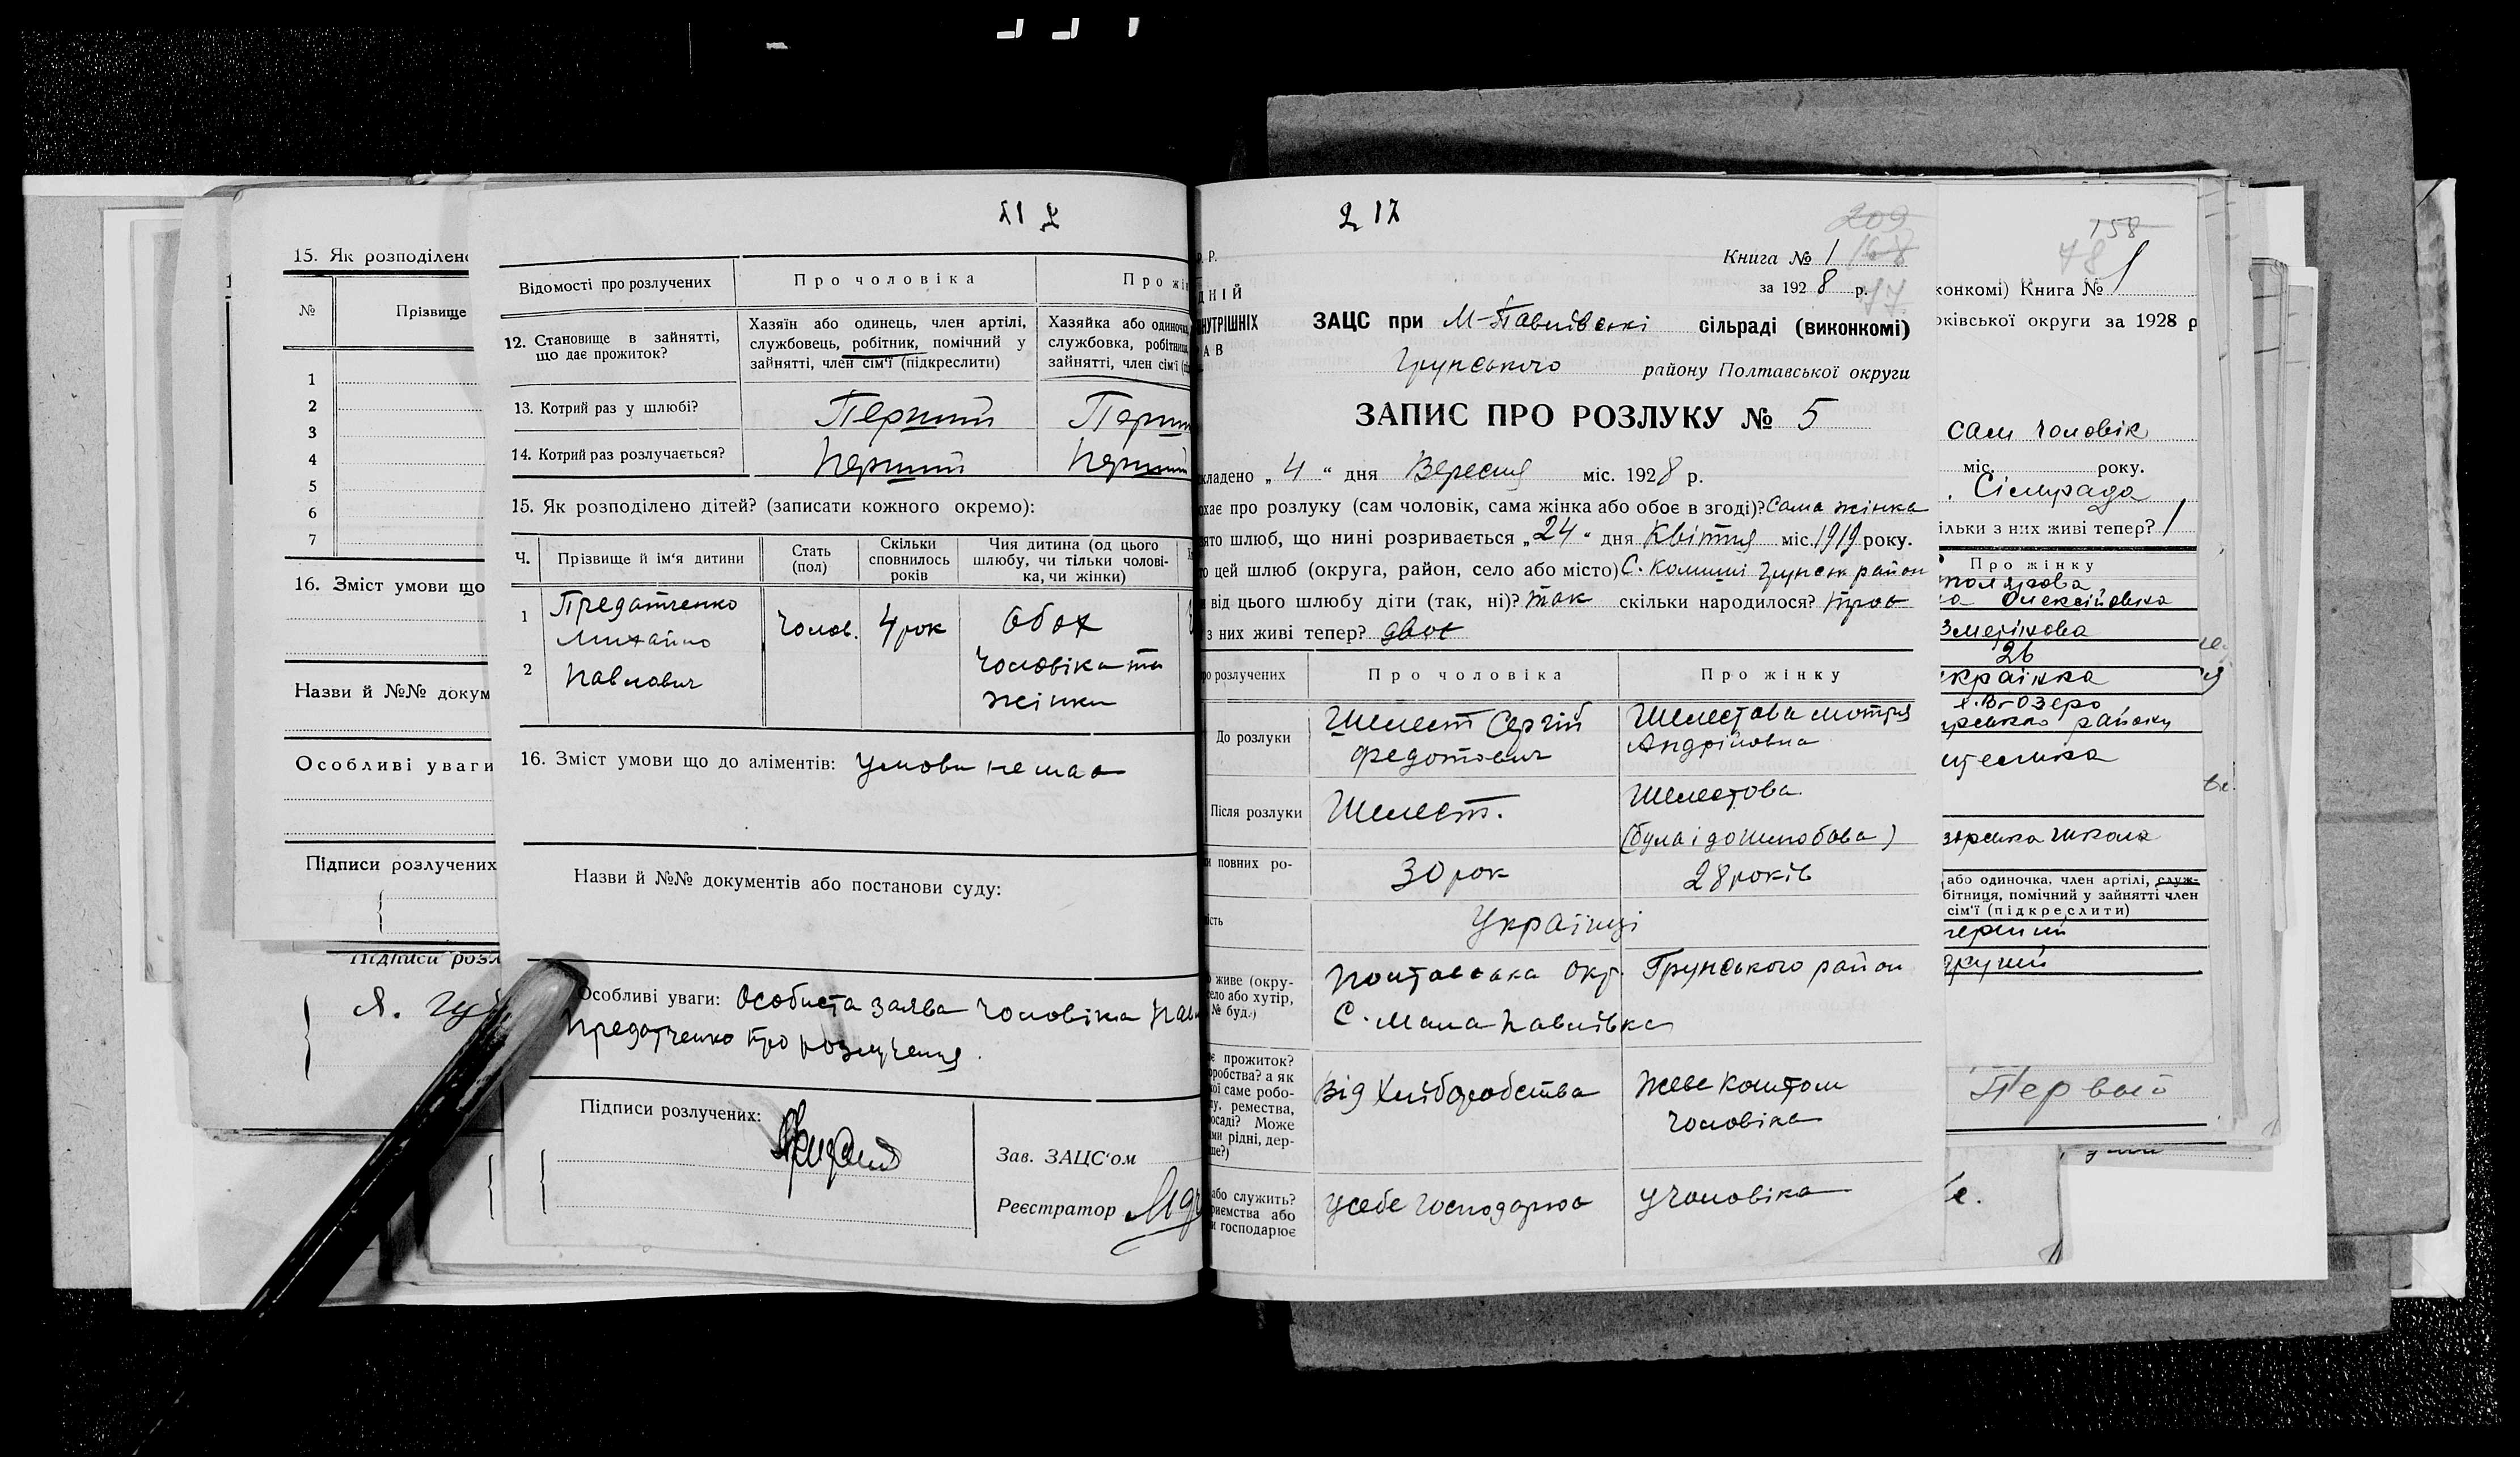 15. Як розподілено
№ Прізвище
1
2
3
4
5
6
7
16. Зміст умови що
Назви й №№ докум
Особливі уваги
Підписи розлучених
Підписи розл
Відомості про розлучених Про чоловіка Про жін
12. Становище в зайнятті, що дає прожиток?
Хазяїн або одинець, член артілі,
службовець, робітник, помічний у
зайнятті, член сім'ї (підкреслити)
Хазяйка або одиночка,
службовка, робітниця,
зайнятті, член сім'ї
13. Котрий раз у шлюбі? Перший Перши
14. Котрий раз розлучається? перший перший
15. Як розподілено дітей? (записати кожного окремо):
Ч. Прізвище й ім'я дитини
Стать (пол)
Скільки сповнилось років
Чия дитина (од цього шлюбу, чи тільки чолові-
ка, чи жінки)
1 Предатченко
Михайло
2 Павлович
Чолов. 4 рок Обох
чоловіка та
жінки
16. Зміст умови що до аліментів: умови немає
Назви й №№ документів або постанови суду:
Особливі уваги: Особиста заява чоловіка Пав
Предатченко про розлучення.
Підписи розлучених:
Зав. ЗАЦС'ом
Реєстратор
217
209
168
77
Р.
ДНІЙ
НУТРІШНІХ
АВ
Книга № 1
за 1928 р.
ЗАЦС при М-Павлівські сільраді (виконкомі)
Грунського району Полтавської округи
ЗАПИС ПРО РОЗЛУКУ № 5
кладено „4“ дня Вересня міс. 1928 р.
охає про розлуку (сам чоловік, сама жінка або обоє в згоді)? Сама жінка
ято шлюб, що нині розривається „24“ дня Квітня міс. 1919 року.
о цей шлюб (округа, район, село або місто) С. Комиші Грунськ район
и від цього шлюбу діти (так, ні)? так скільки народилося? троє
з них живі тепер? двоє
ро розлучених Про чоловіка Про жінку
До розлуки
Шелест Сергій
Федотович
Шелестова Мотря
Андріївна
Після розлуки Шелест. Шелестова
(була і до шлюбова)
и повних ро- 30 рок 28 років
ість Українці
о живе (окру-
ело або хутір,
№ буд.)
Полтавська окр. Грунського район
С. Мала Павлівка
є прожиток?
оробства? а як
ої саме робо-
у, ремества,
осаді? Може
ми рідні, дер-
ше?)
Від хліборобства
Живе коштом
чоловіка
або служить?
риємства або
и господарює
У себе господарює У чоловіка
158
78
конкомі) Книга № 1
рківської округи за 1928 р
сам чоловік
міс. року.
Сільрада
ільки з них живі тепер? 1
Про жінку
Олексіївна
26
країнка
району
школа
або одиночка, член артілі, служ-
бітниця, помічний у зайнятті член
сім'ї (підкреслити)
перший
другий
Первый